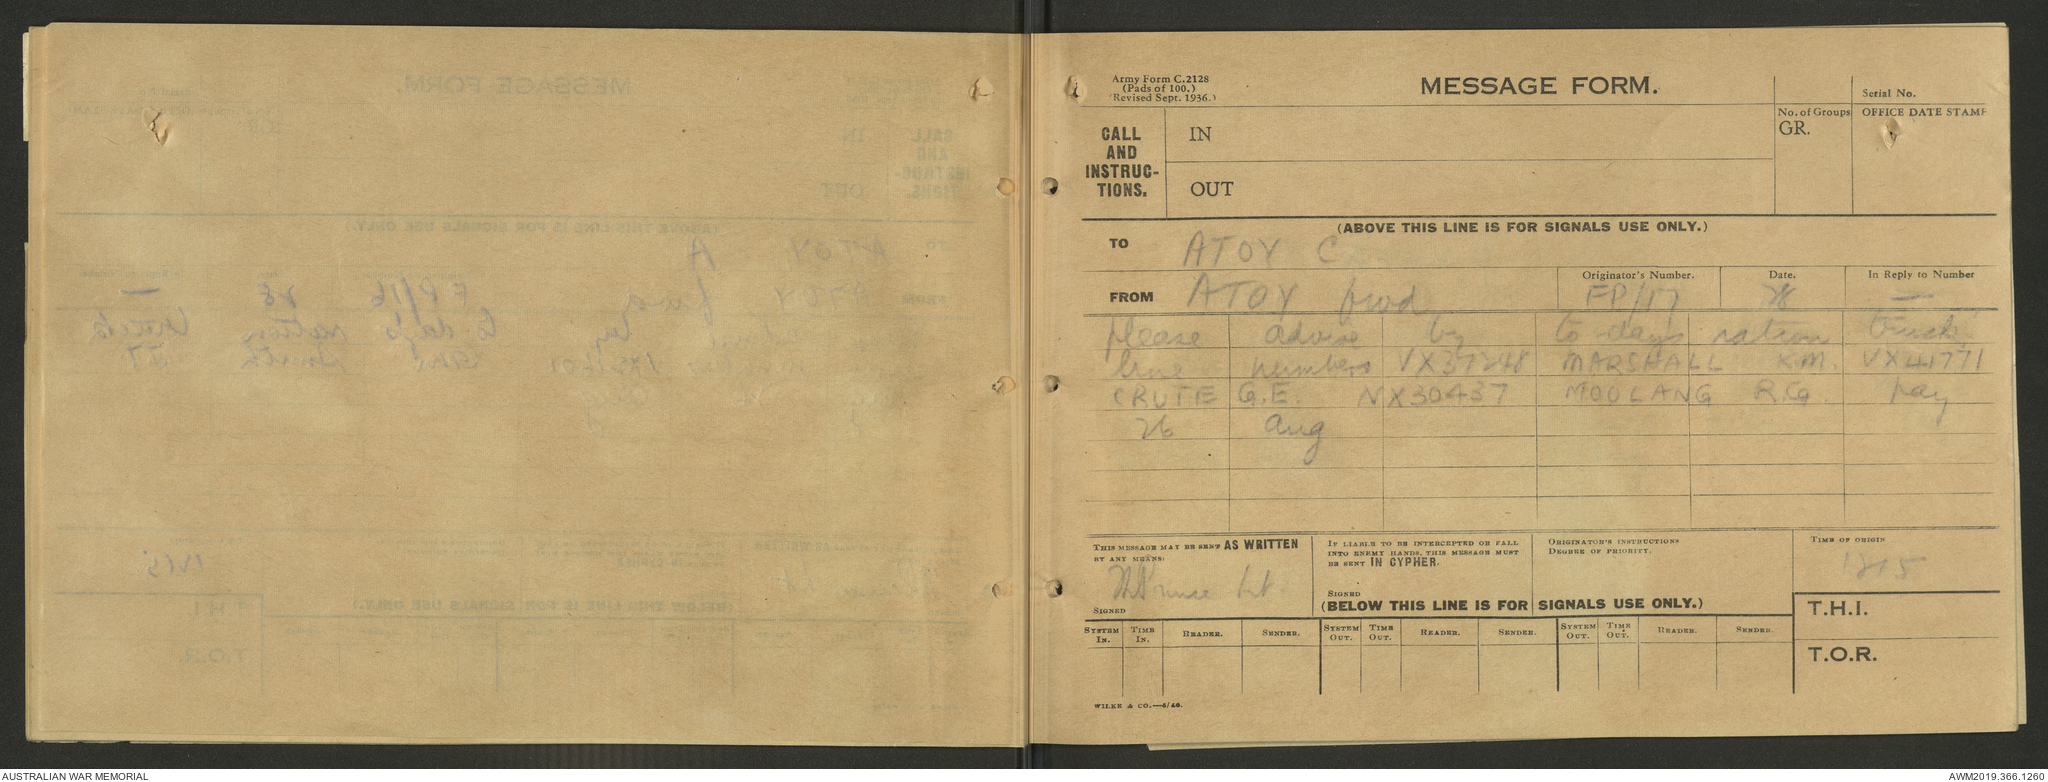 Army Form C.2128
(Pads of 100.)
(Revised Sept. 1936.)
MESSAGE FORM.
Serial No.
CALL AND INSTRUC-TIONS.
IN
OUT
No. of Groups
GR.
OFFICE DATE STAMP
(ABOVE THIS LINE IS FOR SIGNALS USE ONLY.)
TO ATOY C
FROM ATOY fwd
Originator's Number. FP/17
Date. 28
In Reply to Number —
please advise by to days ration truck
line numbers VX37248 MARSHALL K.M. VX41771
CRUTE G.E. NX30437 MOOLANG R.G. pay
26 Aug
THIS MESSAGE MAY BE SENT AS WRITTEN BY ANY MEANS:
Lt
SIGNED
IF LIABLE TO BE INTERCEPTED OR FALL INTO ENEMY HANDS, THIS MESSAGE MUST BE SENT IN CYPHER.
SIGNED
ORIGINATOR'S INSTRUCTIONS
DEGREE OF PRIORITY.
TIME OF ORIGIN
1215
(BELOW THIS LINE IS FOR SIGNALS USE ONLY.)
T.H.I.
SYSTEM IN. TIME IN. READER. SENDER. SYSTEM OUT. TIME OUT. READER. SENDER. SYSTEM OUT. TIME OUT. READER. SENDER.
T.O.R.
WILKE & CO.—5/40.
AUSTRALIAN WAR MEMORIAL
AWM2019.366.1260